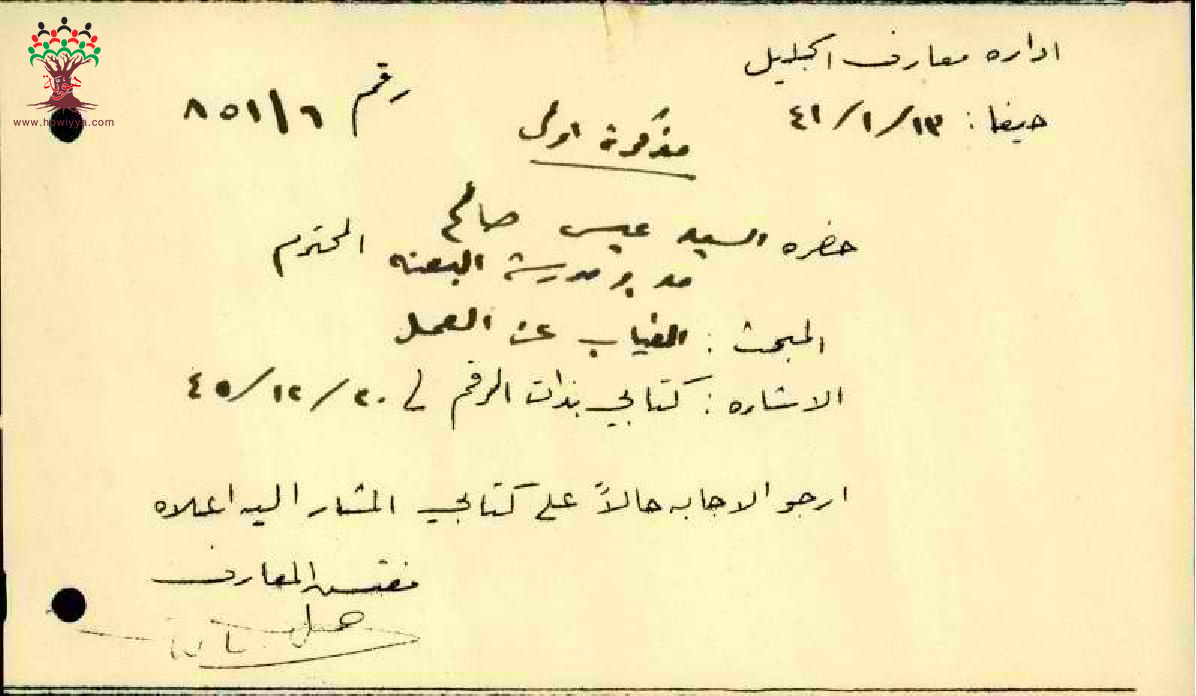 اداره معارف الجليل
حيفا : ١٣/١/٤١
رقم ٨٥١/٦
مذكرة اولى
حضره السيد عيسى صالح
مدير مدرسة البعنه المحترم
المبحث : الغياب عن العمل
الاشاره : كتابي بذات الرقم في ٢٠/١٢/٤٠
ارجو الاجابه حالاً على كتابي المشار اليه اعلاه
مفتش المعارف
هوية
www.howiyya.com